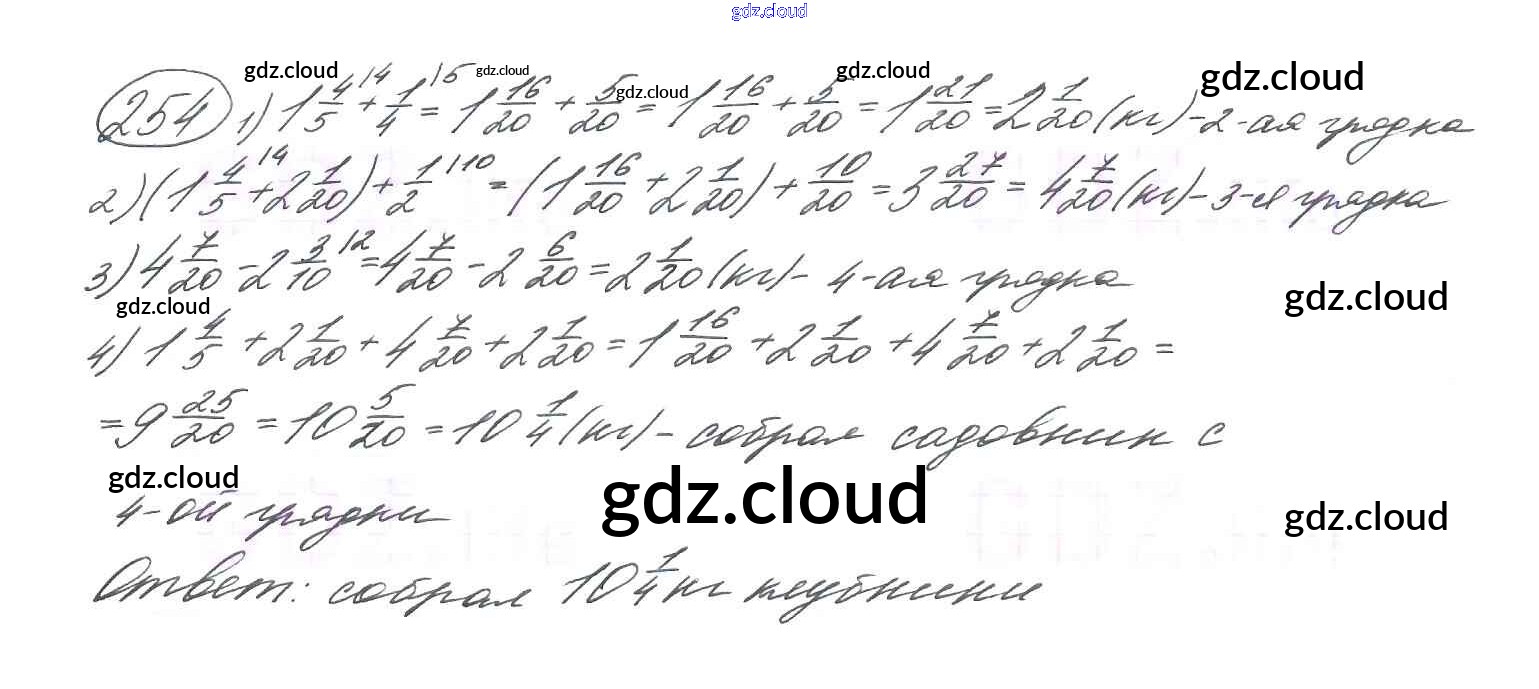 gdz.cloud
gdz.cloud gdz.cloud gdz.cloud gdz.cloud gdz.cloud
254 1) 1 4/5 |4 + 1/4 |5 = 1 16/20 + 5/20 = 1 16/20 + 5/20 = 1 21/20 = 2 1/20 (кг) - 2-ая грядка
2) (1 4/5 |4 + 2 1/20) + 1/2 |10 = (1 16/20 + 2 1/20) + 10/20 = 3 27/20 = 4 7/20 (кг) - 3-ья грядка
3) 4 7/20 - 2 3/10 |2 = 4 7/20 - 2 6/20 = 2 1/20 (кг) - 4-ая грядка
gdz.cloud gdz.cloud
4) 1 4/5 + 2 1/20 + 4 7/20 + 2 1/20 = 1 16/20 + 2 1/20 + 4 7/20 + 2 1/20 =
= 9 25/20 = 10 5/20 = 10 1/4 (кг) - собрал садовник с
gdz.cloud gdz.cloud gdz.cloud
4-ой грядки
Ответ: собрал 10 1/4 кг клубники